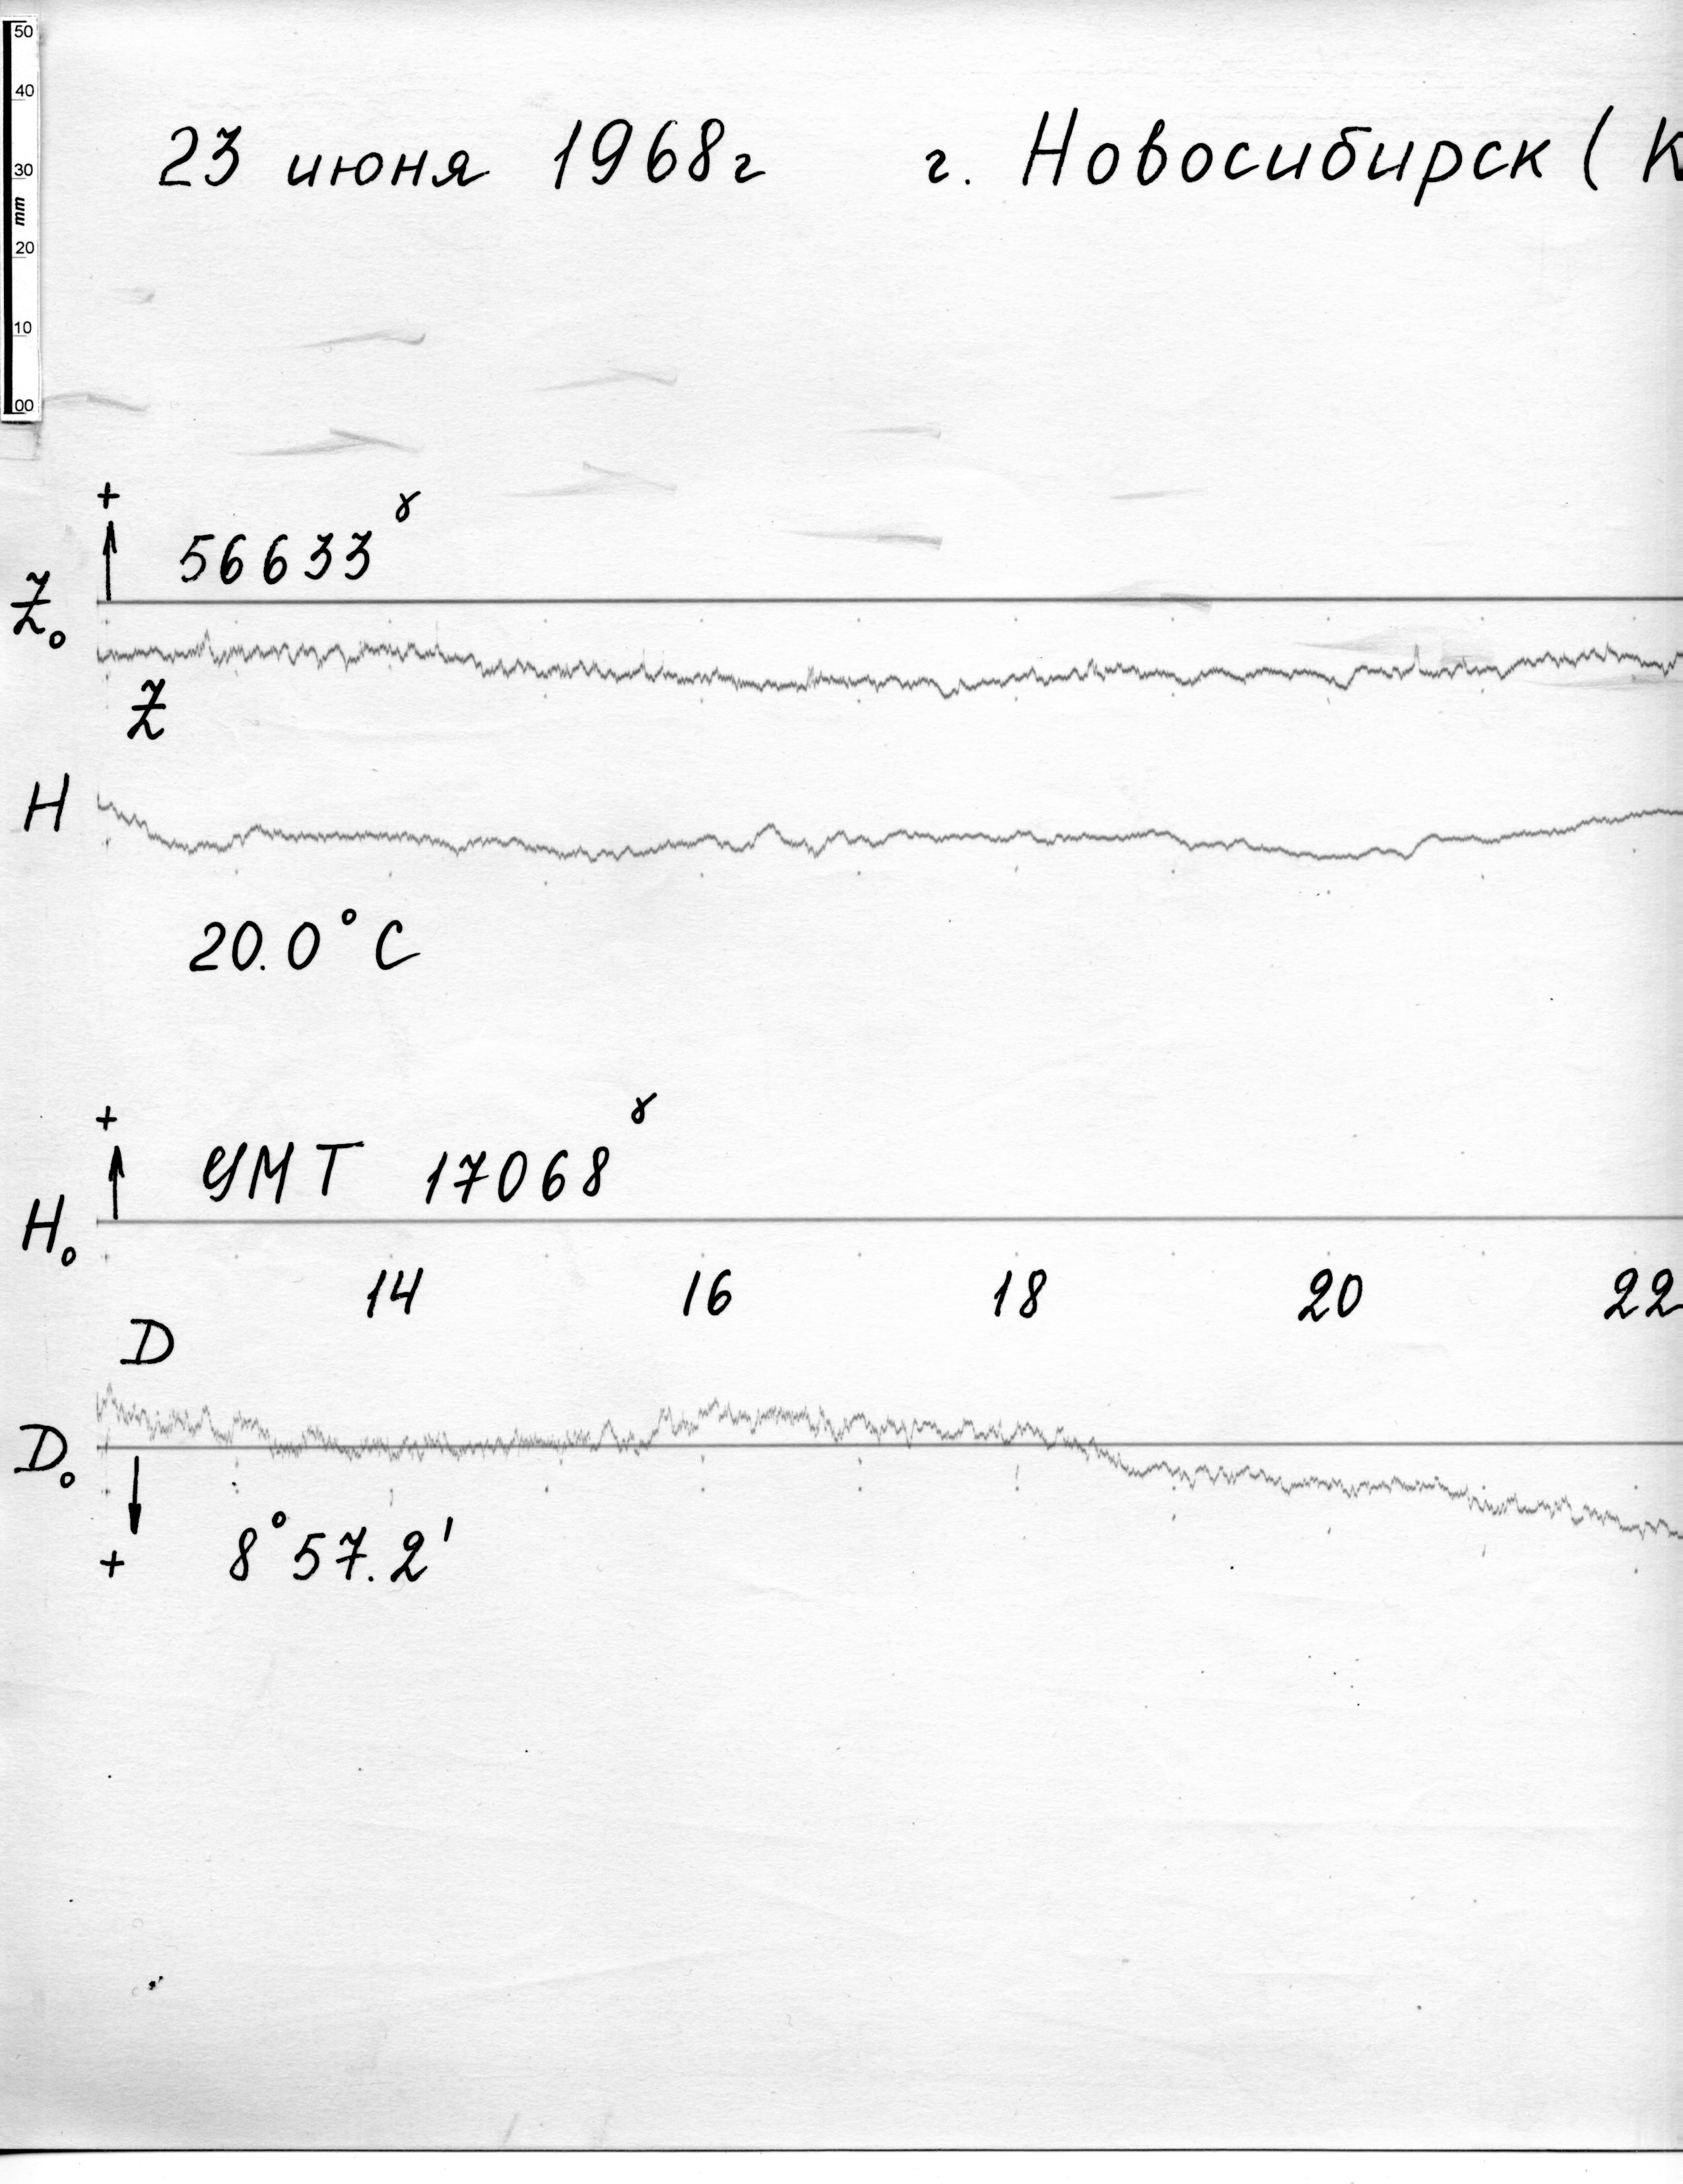 50
40
30
mm
20
10
00
23 июня 1968г г. Новосибирск ( К
+
56633 γ
Z₀
Z
H
20.0°C
+
УМТ 17068 γ
H₀
14 16 18 20 22
D
D₀
+ 8°57.2'